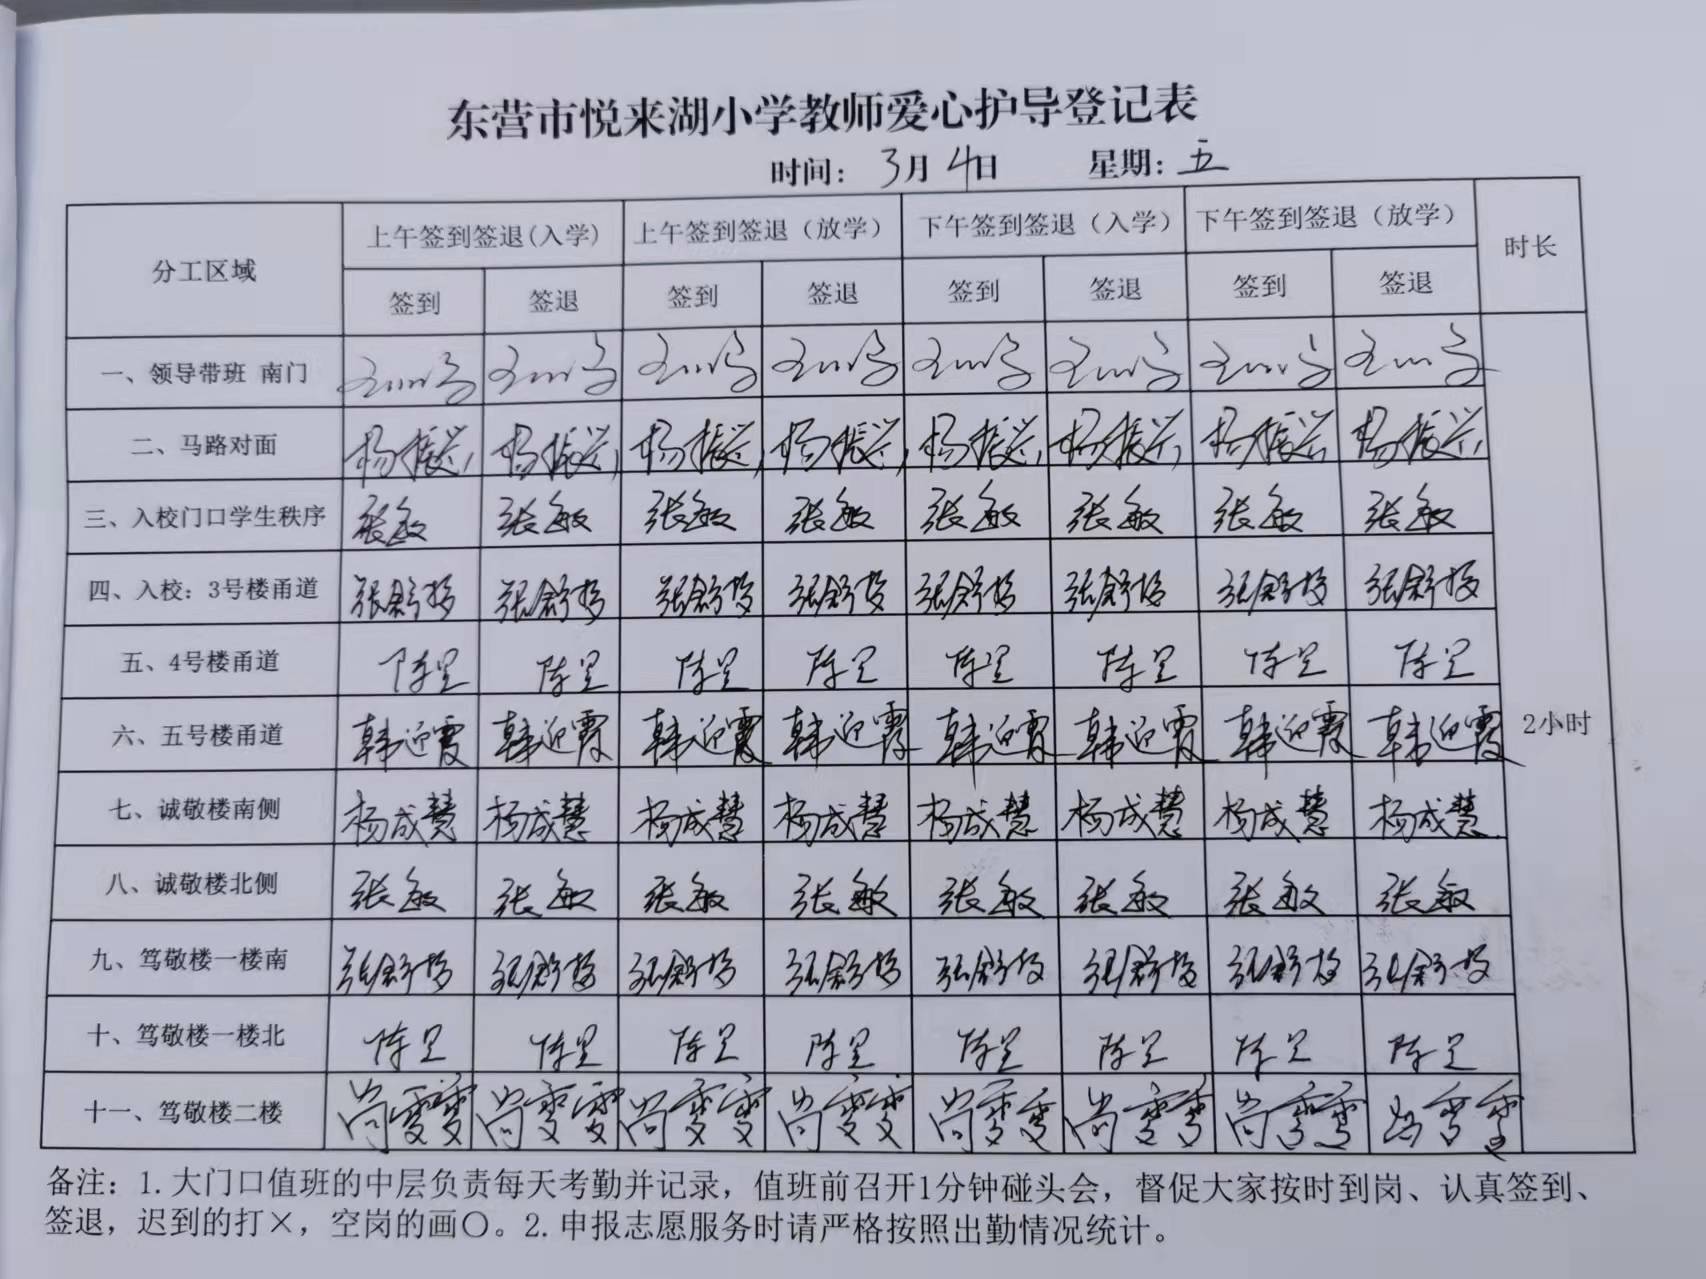 东营市悦来湖小学教师爱心护导登记表
时间: 3月4日 星期: 五
分工区域 上午签到签退(入学) 上午签到签退（放学） 下午签到签退（入学） 下午签到签退（放学） 时长
签到 签退 签到 签退 签到 签退 签到 签退
一、领导带班 南门
二、马路对面 杨振兴 杨振兴 杨振兴 杨振兴 杨振兴 杨振兴 杨振兴 杨振兴
三、入校门口学生秩序 张敏 张敏 张敏 张敏 张敏 张敏 张敏 张敏
四、入校: 3号楼甬道 张舒 张舒 张舒 张舒 张舒 张舒 张舒 张舒
五、4号楼甬道 陈 陈 陈 陈 陈 陈 陈 陈
六、五号楼甬道 韩迎霞 韩迎霞 韩迎霞 韩迎霞 韩迎霞 韩迎霞 韩迎霞 韩迎霞 2小时
七、诚敬楼南侧 杨成慧 杨成慧 杨成慧 杨成慧 杨成慧 杨成慧 杨成慧 杨成慧
八、诚敬楼北侧 张敏 张敏 张敏 张敏 张敏 张敏 张敏 张敏
九、笃敬楼一楼南 张舒 张舒 张舒 张舒 张舒 张舒 张舒 张舒
十、笃敬楼一楼北 陈 陈 陈 陈 陈 陈 陈 陈
十一、笃敬楼二楼 尚雯雯 尚雯雯 尚雯雯 尚雯雯 尚雯雯 尚雯雯 尚雯雯 尚雯雯
备注: 1.大门口值班的中层负责每天考勤并记录，值班前召开1分钟碰头会，督促大家按时到岗、认真签到、
签退，迟到的打×，空岗的画〇。2.申报志愿服务时请严格按照出勤情况统计。